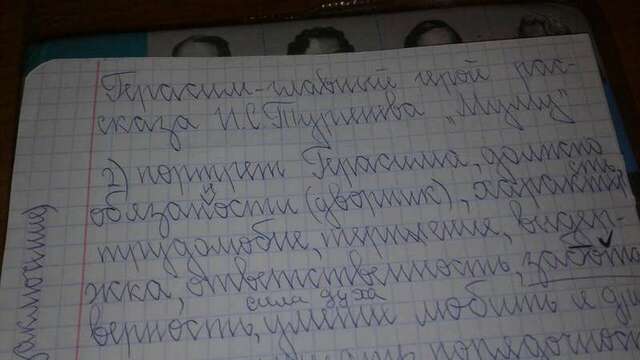 Герасим-главный герой рас-
сказа И.С.Тургенва „Муму"
2) портрет Герасима, должно
обязаности (дворник), характер
н
ть,
трудолюбие, терпение, выдер-
жка, ответственность, забота
сила духа
верность, умение любить и
порядочнос
заключение)